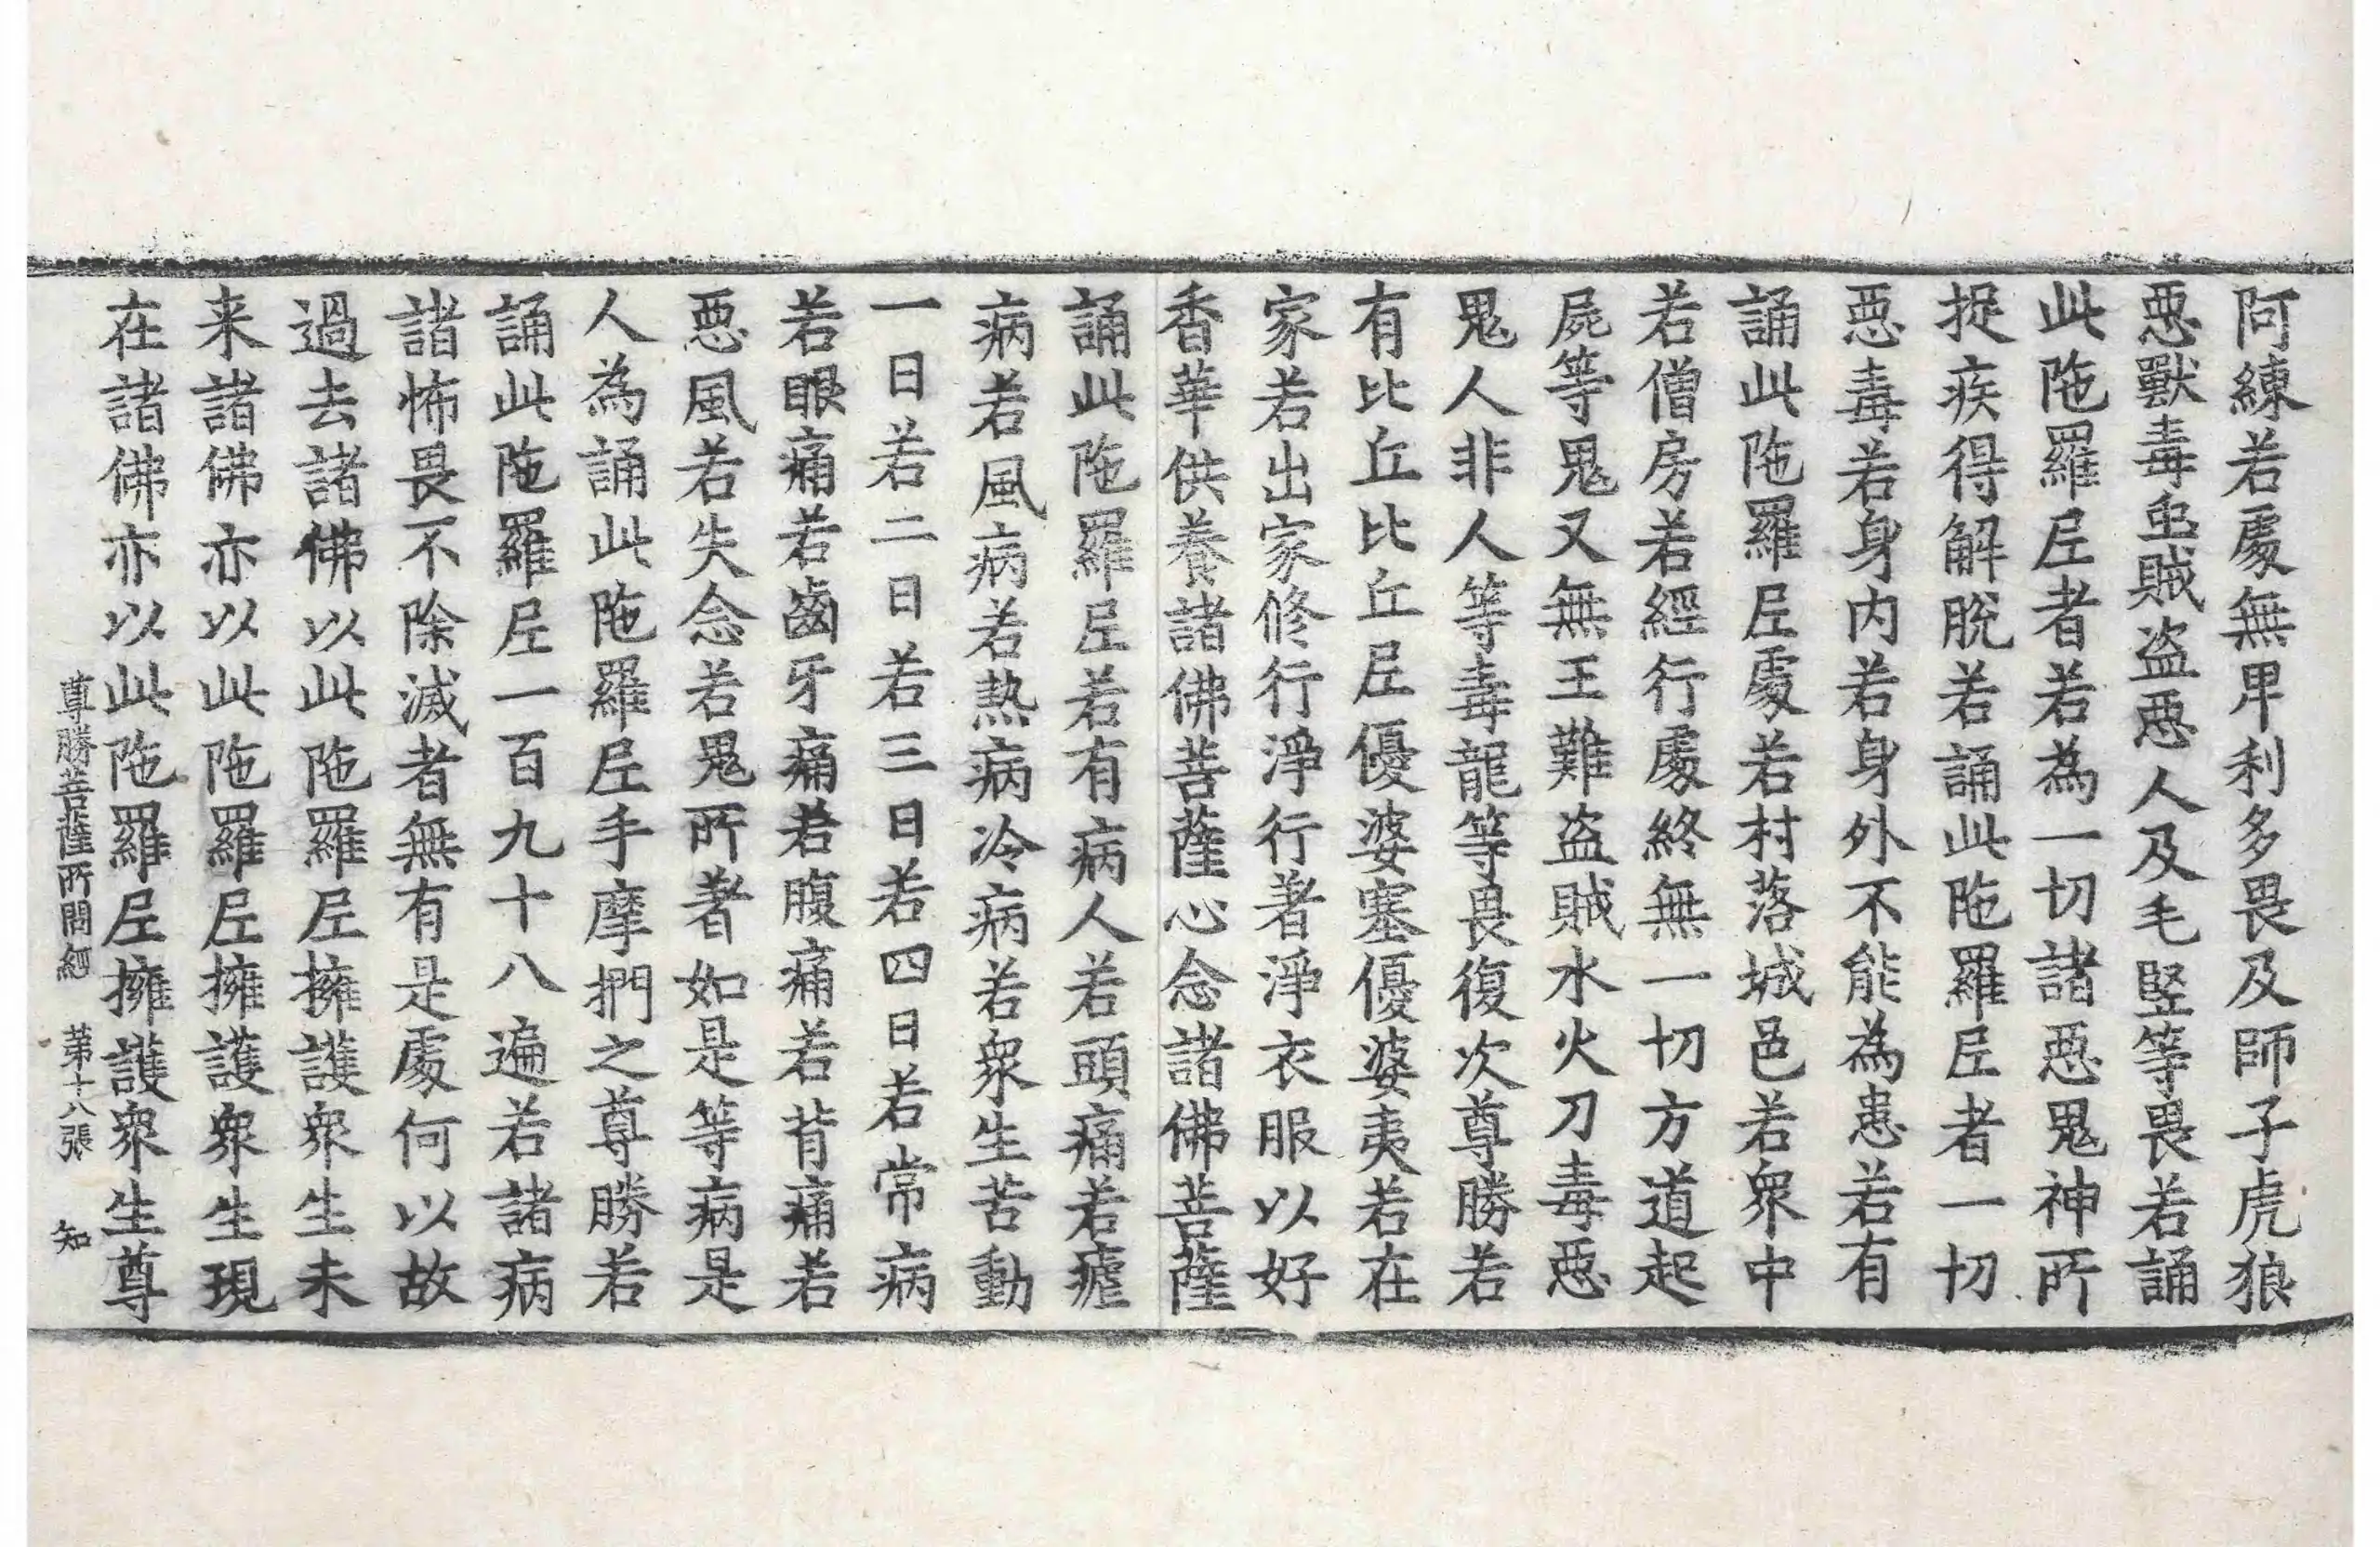 阿練若處無卑利多畏及師子虎狼
惡獸毒虫賊盗惡人及毛竪等畏若誦
此陁羅尼者若為一切諸惡鬼神所
捉疾得解脫若誦此陁羅尼者一切
惡毒若身内若身外不能為患若有
誦此陁羅尼處若村落城邑若衆中
若僧房若經行處終無一切方道起
屍等鬼又無王難盗賊水火刀毒惡
鬼人非人等毒龍等畏復次尊勝若
有比丘比丘尼優婆塞優婆夷若在
家若出家修行淨行著淨衣服以好
香華供養諸佛菩薩心念諸佛菩薩
誦此陁羅尼若有病人若頭痛若瘧
病若風病若熱病冷病若衆生苦動
一日若二日若三日若四日若常病
若眼痛若齒牙痛若腹痛若背痛若
惡風若失念若鬼所著如是等病是
人為誦此陁羅尼手摩捫之尊勝若
誦此陁羅尼一百九十八遍若諸病
諸怖畏不除滅者無有是處何以故
過去諸佛以此陁羅尼擁護衆生未
来諸佛亦以此陁羅尼擁護衆生現
在諸佛亦以此陁羅尼擁護衆生尊
尊勝菩薩所問經 苐十八張 知